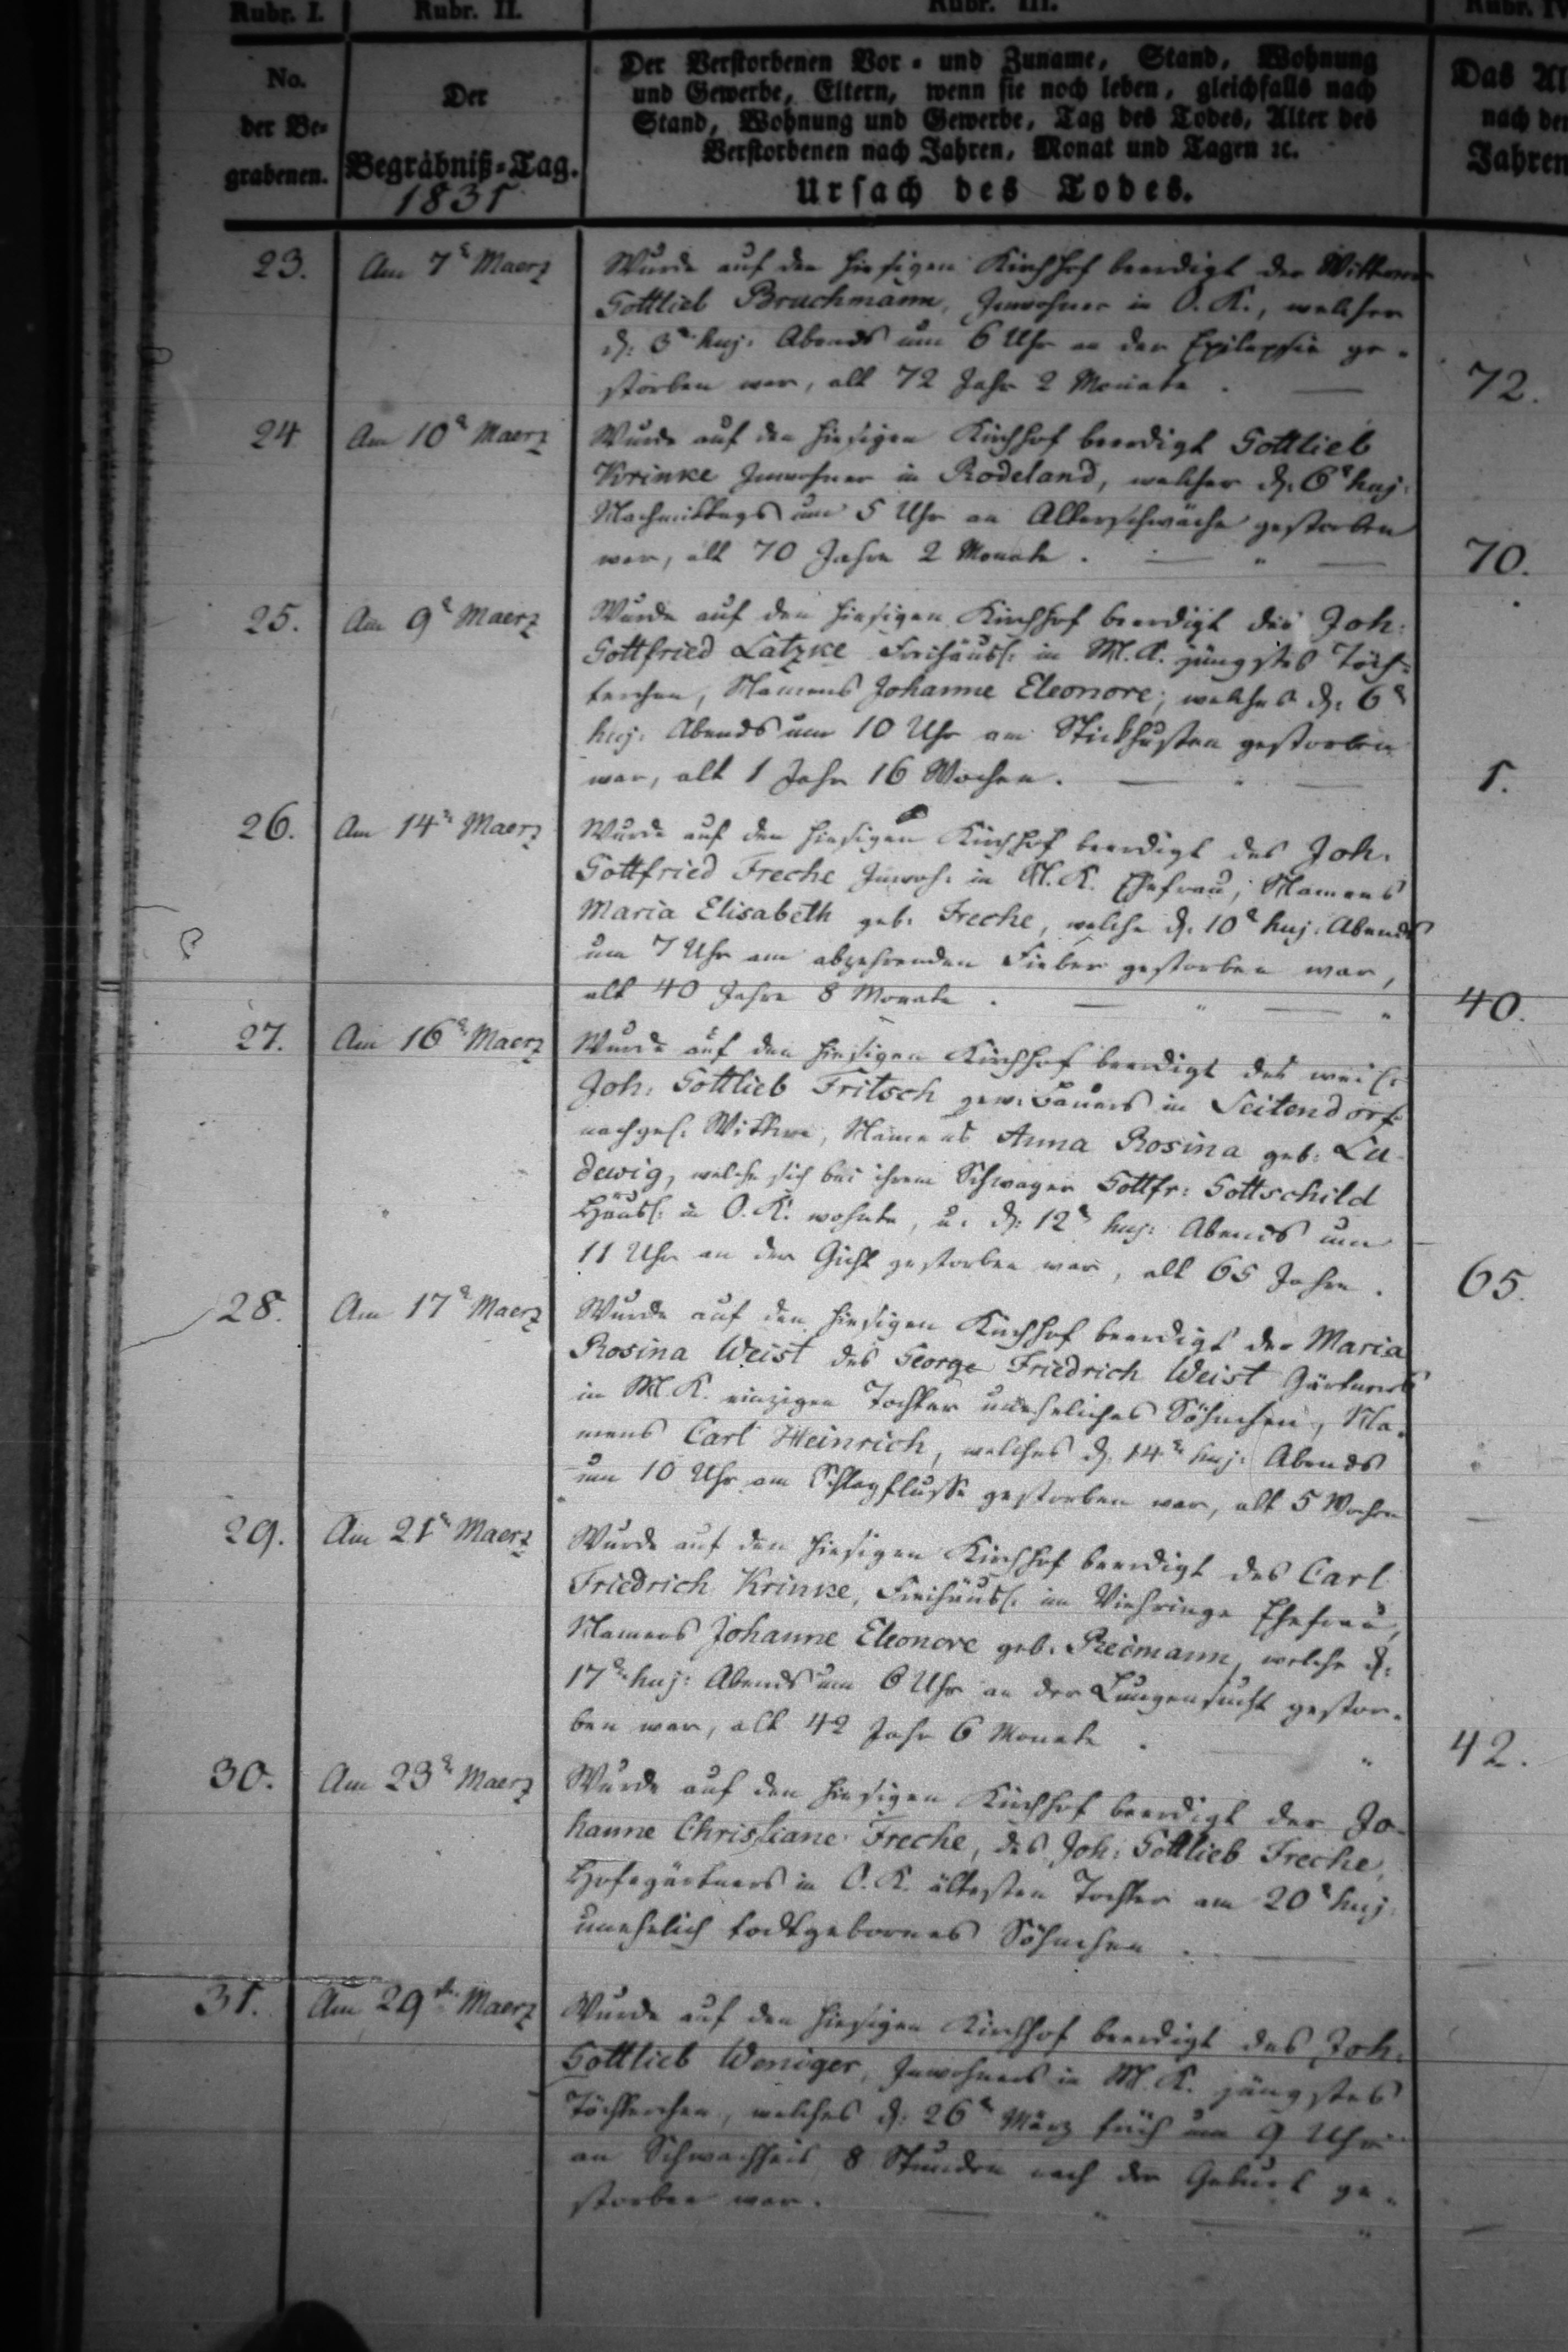 Rubr. I.
Rubr. II.
Rubr. III.
Rubr. IV
No.
der Be-
grabenen.
Der
Begräbniß-Tag.
1831
Der Verstorbenen Vor- und Zuname, Stand, Wohnung
und Gewerbe, Eltern, wenn sie noch leben, gleichfalls nach
Stand, Wohnung und Gewerbe, Tag des Todes, Alter des
Verstorbenen nach Jahren, Monat und Tagen ꝛc.
Ursach des Todes.
Das Al
nach de
Jahren
23.
Am 7t Maerz
Wurde auf den hiesigen Kirchhof beerdigt der Wittwer
Gottlieb Bruchmann, Inwohner in O. K., welcher
d: 3t huj: Abends um 6 Uhr an der Epilepsie ge-
storben war, alt 72 Jahr 2 Monate.
72.
24
Am 10t Maerz
Wurde auf den hiesigen Kirchhof beerdigt Gottlieb
Krinke Inwohner in Rodeland, welcher d: 6t huj:
Nachmittags um 5 Uhr an Altersschwäche gestorben
war, alt 70 Jahre 2 Monate.
70.
25.
Am 9t Maerz
Wurde auf den hiesigen Kirchhof beerdigt des Joh:
Gottfried Latzke Freihäusl: in M. K. jüngstes Töch-
terchen, Namens Johanne Eleonore; welches d: 6t
huj: Abends um 10 Uhr am Stickhusten gestorben
war, alt 1 Jahr 16 Wochen.
1.
26.
Am 14t Maerz
Wurde auf den hiesigen Kirchhof beerdigt des Joh:
Gottfried Freche Inwoh: in M. K. Ehefrau, Namens
Maria Elisabeth geb: Freche, welche d: 10t huj: Abends
um 7 Uhr am abzehrenden Fieber gestorben war,
alt 40 Jahre 8 Monate.
40.
27.
Am 16t Maerz
Wurde auf den hiesigen Kirchhof beerdigt des weil:
Joh: Gottlieb Fritsch gew: Bauers in Seitendorf
nachgel: Wittwe, Namens Anna Rosina geb: Lu-
dewig, welche sich bei ihrem Schwager Gottfr: Gottschild
Häusl: in O. K. wohnte, u: d: 12t huj: Abends um
11 Uhr an der Gicht gestorben war, alt 65 Jahre.
65.
28.
Am 17t Maerz
Wurde auf den hiesigen Kirchhof beerdigt der Maria
Rosina Weist des George Friedrich Weist Gärtners
in M. K. einzigen Tochter uneheliches Söhnchen, Na-
mens Carl Heinrich, welches d. 14t huj: Abends
um 10 Uhr am Schlagflusse gestorben war, alt 5 Wochen
29.
Am 21t Maerz
Wurde auf den hiesigen Kirchhof beerdigt des Carl
Friedrich Krinke, Freihäusl: im Viehringe Ehefrau,
Namens Johanne Eleonore geb. welche d:
17t huj: Abends um 6 Uhr an der Lungensucht gestor-
ben war, alt 42 Jahr 6 Monate
42.
30.
Am 23t Maerz
Wurde auf den hiesigen Kirchhof beerdigt der Jo-
hanne Christiane Freche, des Joh: Gottlieb Freche,
Hofegärtners in O. K. ältesten Tochter am 20t huj:
unehelich todtgebornes Söhnchen.
31.
Am 29t Maerz
Wurde auf den hiesigen Kirchhof beerdigt des Joh:
Gottlieb Weniger, Inwohners in M. K. jüngstes
Töchterchen, welches d: 26t März früh um 9 Uhr
an Schwachheit 8 Stunden nach der Geburt ge-
storben war.